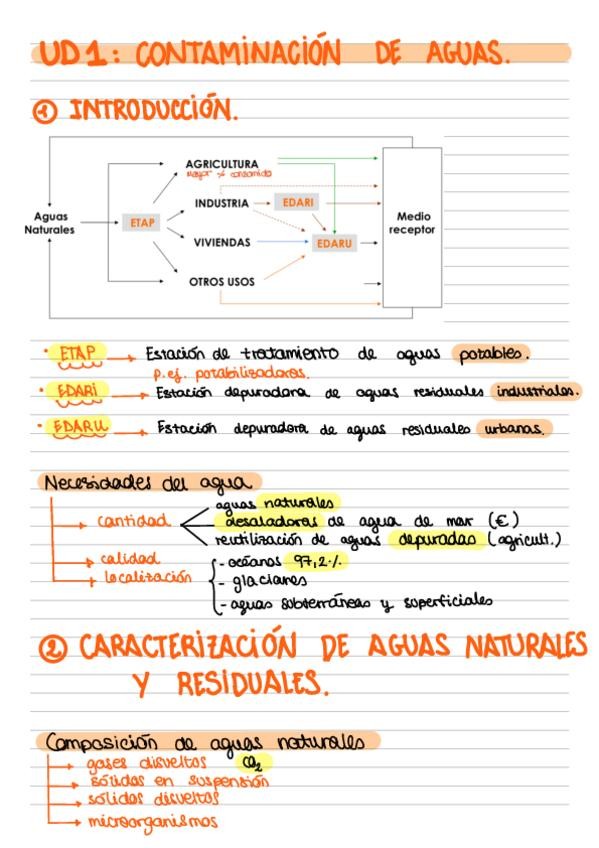 UD1: CONTAMINACIÓN DE AGUAS.
① INTRODUCCIÓN.
AGRICULTURA
Mayor % consumido
INDUSTRIA
EDARI
Aguas Naturales
ETAP
Medio receptor
VIVIENDAS
EDARU
OTROS USOS
· ETAP → Estación de tratamiento de aguas potables.
p.ej. potabilizadoras.
· EDARi → Estación depuradora de aguas residuales industriales.
· EDARU → Estación depuradora de aguas residuales urbanas.
Necesidades del agua
aguas naturales
→ cantidad desaladoras de agua de mar (€)
reutilización de aguas depuradas (agricult.)
→ calidad - océanos 97,2%
→ localización - glaciares
- aguas subterráneas y superficiales
② CARACTERIZACIÓN DE AGUAS NATURALES
Y RESIDUALES.
Composición de aguas naturales
→ gases disueltos CO2
→ sólidos en suspensión
→ sólidos disueltos
→ microorganismos